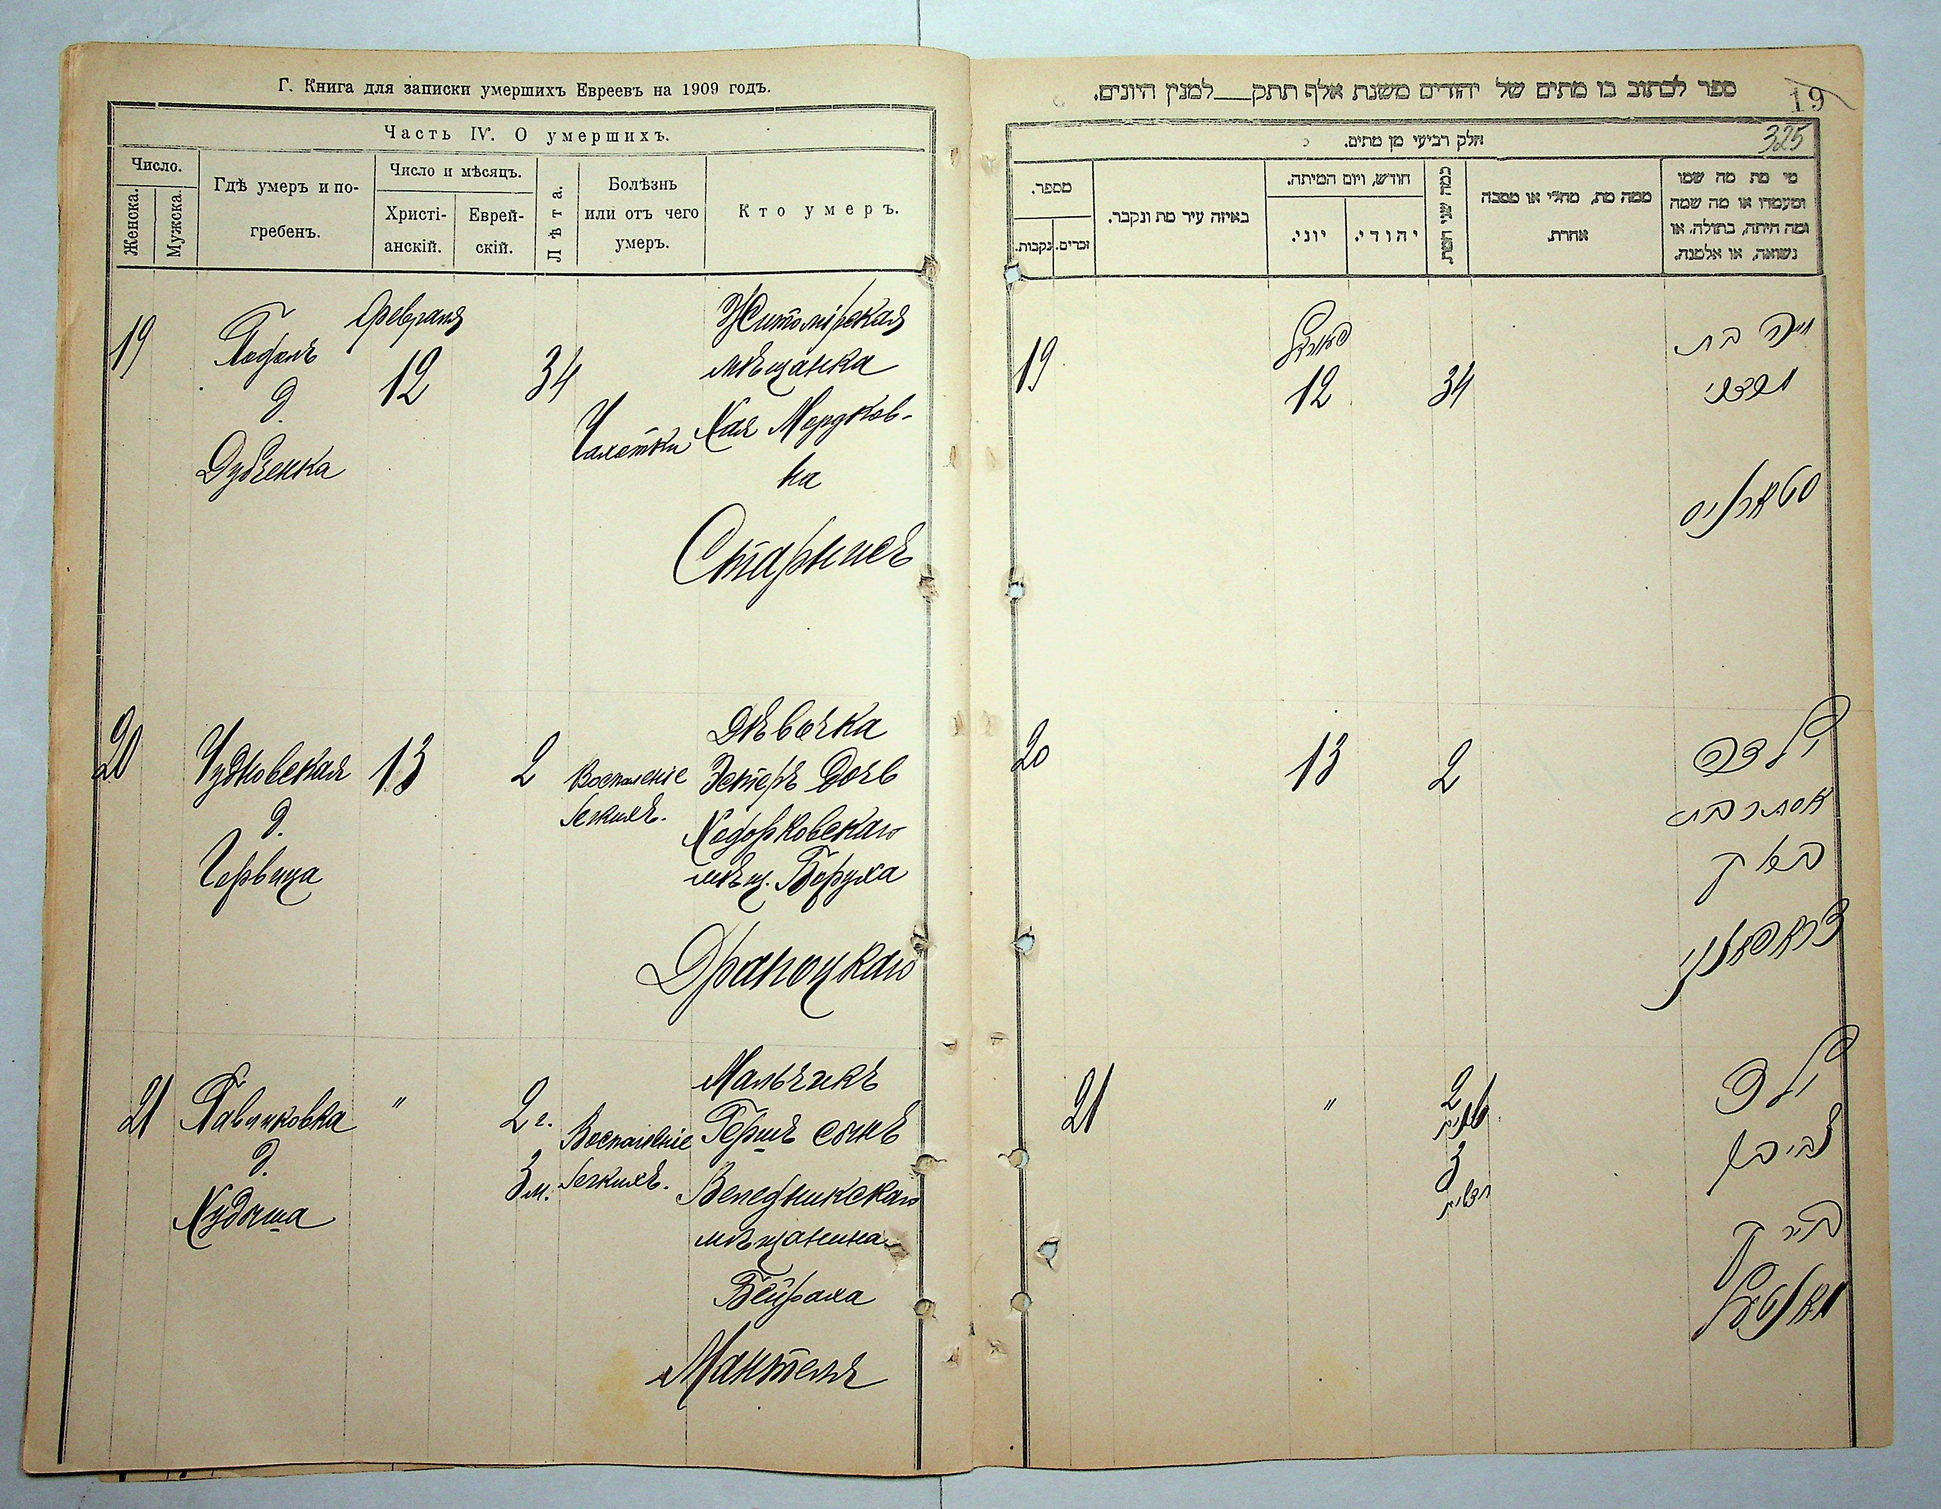 Г. Книга для записки умершихъ Евреевъ на 1909 годъ.
Часть IV. О умершихъ.
Число.
Женска.
Мужска.
Гдѣ умеръ и по-
гребенъ.
Число и мѣсяцъ.
Христі-
анскій.
Еврей-
скій.
Лѣта.
Болѣзнь
или отъ чего
умеръ.
Кто умеръ.
19
Подолъ
д.
Дубченка
Февраля
12
34
Чахотки
Житомірская
мѣщанка
Хая Мордков-
на
Старкисъ
20
Чудновская
д.
Червица
13
2
Воспаленіе
легкихъ.
Дѣвочка
Эстеръ дочь
Ходорковскаго
мѣщ. Боруха
21
д.
"
2 г.
3 м.
Воспаленіе
легкихъ.
Мальчикъ
Гершъ сынъ
Веледникскаго
мѣщанина
Бейраха
Мантель
ספר לכתוב בו מתים של יהודים משנת אלף תתק למנין היונים.
19
325
חלק רביעי מן מתים.
מספר.
נקבות.
זכרים.
באיזה עיר מת ונקבר.
חודש, ויום המיתה.
יוני.
יהודי.
כמה שני המת.
ממה מת, מחלי או מסבה
אחרת.
מי מת מה שמו
ומעמדו או מה שמה
ומה היתה, בתולה, או
נשואה, או אלמנה.
19
12
34
חיה בת
מרדכי
סטארקיס
20
13
2
ילדה
אסתר בת
ברוך
21
"
2
שנים
3
חדשים
ילד
מאנטעל